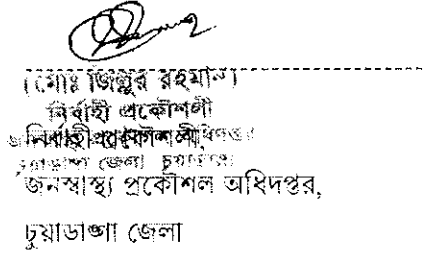 (মোঃ জিল্লুর রহমান)
নির্বাহী প্রকৌশলী
নির্বাহী প্রকৌশলী,
চুয়াডাঙ্গা জেলা
জনস্বাস্থ্য প্রকৌশল অধিদপ্তর,
চুয়াডাঙ্গা জেলা